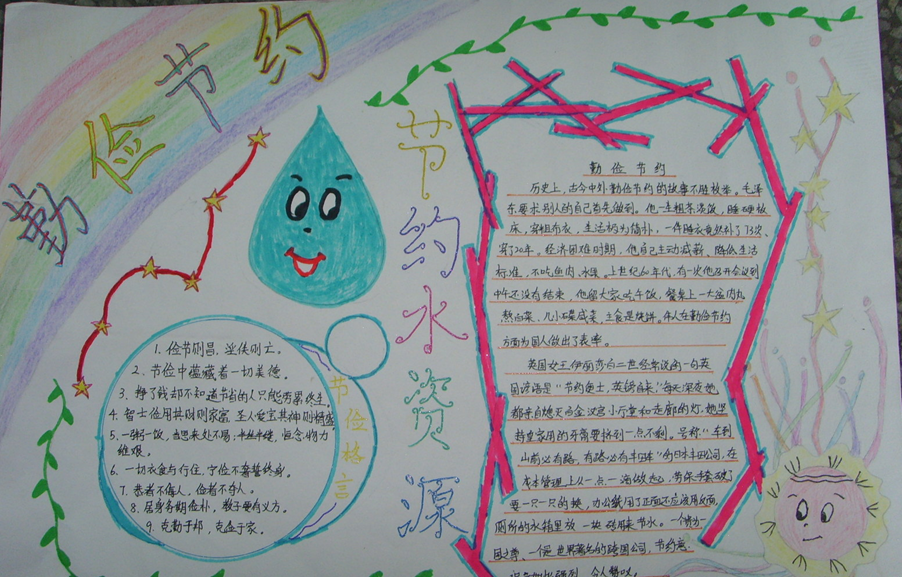 勤俭节约
节约水资源
节俭格言
1. 俭节则昌,淫佚则亡。
2. 节俭中蕴藏着一切美德。
3. 挣了钱却不知道节省的人只能劳累终生。
4. 智士俭用其财则家富 圣人爱宝其神则精盛。
5. 一粥一饭,当思来处不易;半丝半缕,恒念物力
维艰。
6. 一切衣食与行住,宁俭不奢誓终身。
7. 恭者不侮人,俭者不夺人。
8. 居身务期俭朴,教子要有义方。
9. 克勤于邦,克俭于家。
勤俭节约
历史上,古今中外勤俭节约的故事不胜枚举。毛泽
东要求别人的自己首先做到。他一生粗茶淡饭,睡硬板
床,穿粗布衣,生活极为简朴,一件睡衣竟然补了73次、
穿了20年。经济困难时期,他自己主动减薪、降低生活
标准,不吃鱼肉、水果。上世纪60年代,有一次他召开会议到
中午还没有结束,他留大家吃午饭,餐桌上一大盆肉丸
熬白菜、几小碟咸菜,主食是烧饼。伟人在勤俭节约
方面为国人做出了表率。
英国女王伊丽莎白二世经常说的一句英
国谚语是“节约便士,英镑自来”,每天深夜她
都亲自熄灭白金汉宫小厅堂和走廊的灯,她坚
持皇家用的牙膏要挤到一点不剩。号称“车到
山前必有路,有路必有丰田车”的日本丰田公司,在
成本管理上从一点一滴做起,劳保手套破了
要一只一只的换,办公纸用了正面还应该用反面,
厕所的水箱里放一块砖用来节水。一个贵为一
国之尊、一个是世界著名的跨国公司,节约意